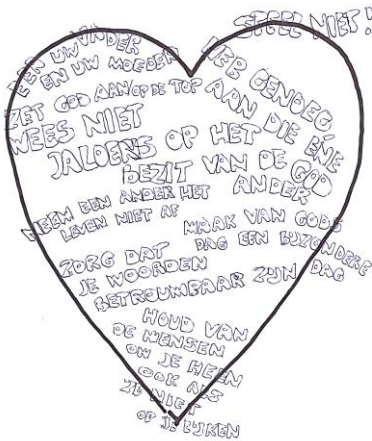 STEEL NIET!
EER UW VADER
EN UW MOEDER
HEB GENOEG
AAN DIE ENE
GOD
ZET GOD AAN OP DE TOP
WEES NIET
JALOERS OP HET
BEZIT VAN DE
ANDER
NEEM EEN ANDER HET
LEVEN NIET AF
MAAK VAN GODS
DAG EEN BIJZONDERE
DAG
ZORG DAT
JE WOORDEN
BETROUWBAAR ZIJN
HOUD VAN
DE MENSEN
OM JE HEEN
OOK ALS
ZE NIET
OP JE LIJKEN